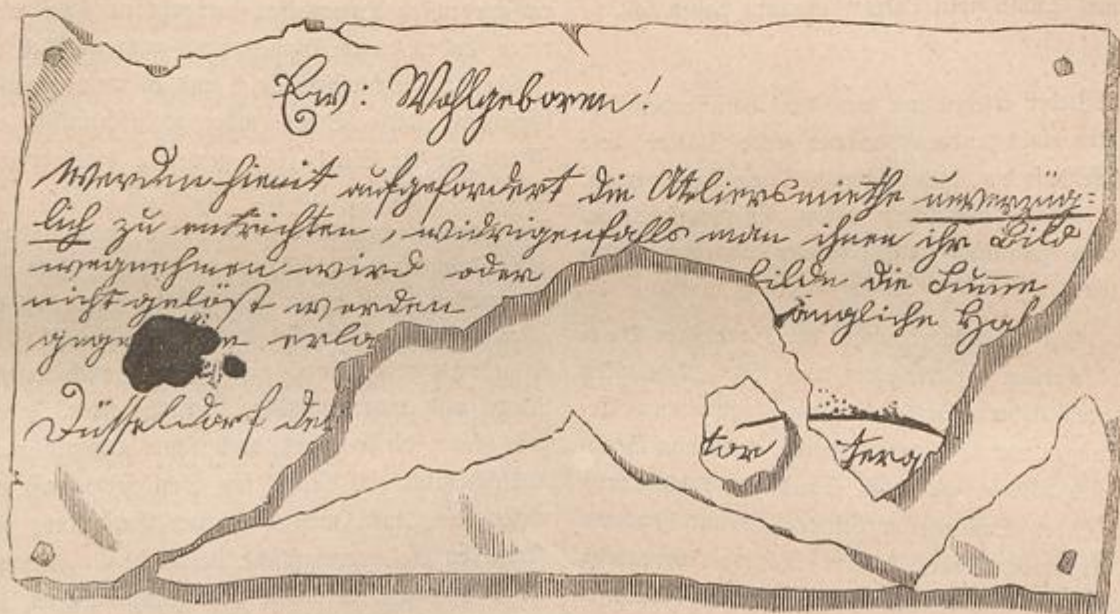 Ew: Wohlgeboren!
Werden hiemit aufgefordert die Ateliersmiethe unverzüg=
lich zu entrichten, widrigenfalls man ihnen ihr Bild
wegnehmen wird oder bilde die Sum̅e
nicht gelöst werden ängliche Haf
gege n erla
Düsseldorf de
tor terg